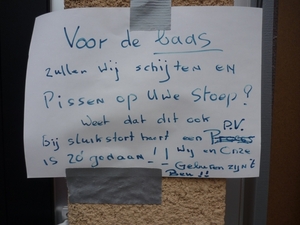 Voor de baas
zullen wij schijten en
Pissen op uwe stoep?
Weet dat dit ook
bij sluikstort hurt een P.V.
is zó gedaan!! Wij en onze
Geburen zijn't
Beu!!